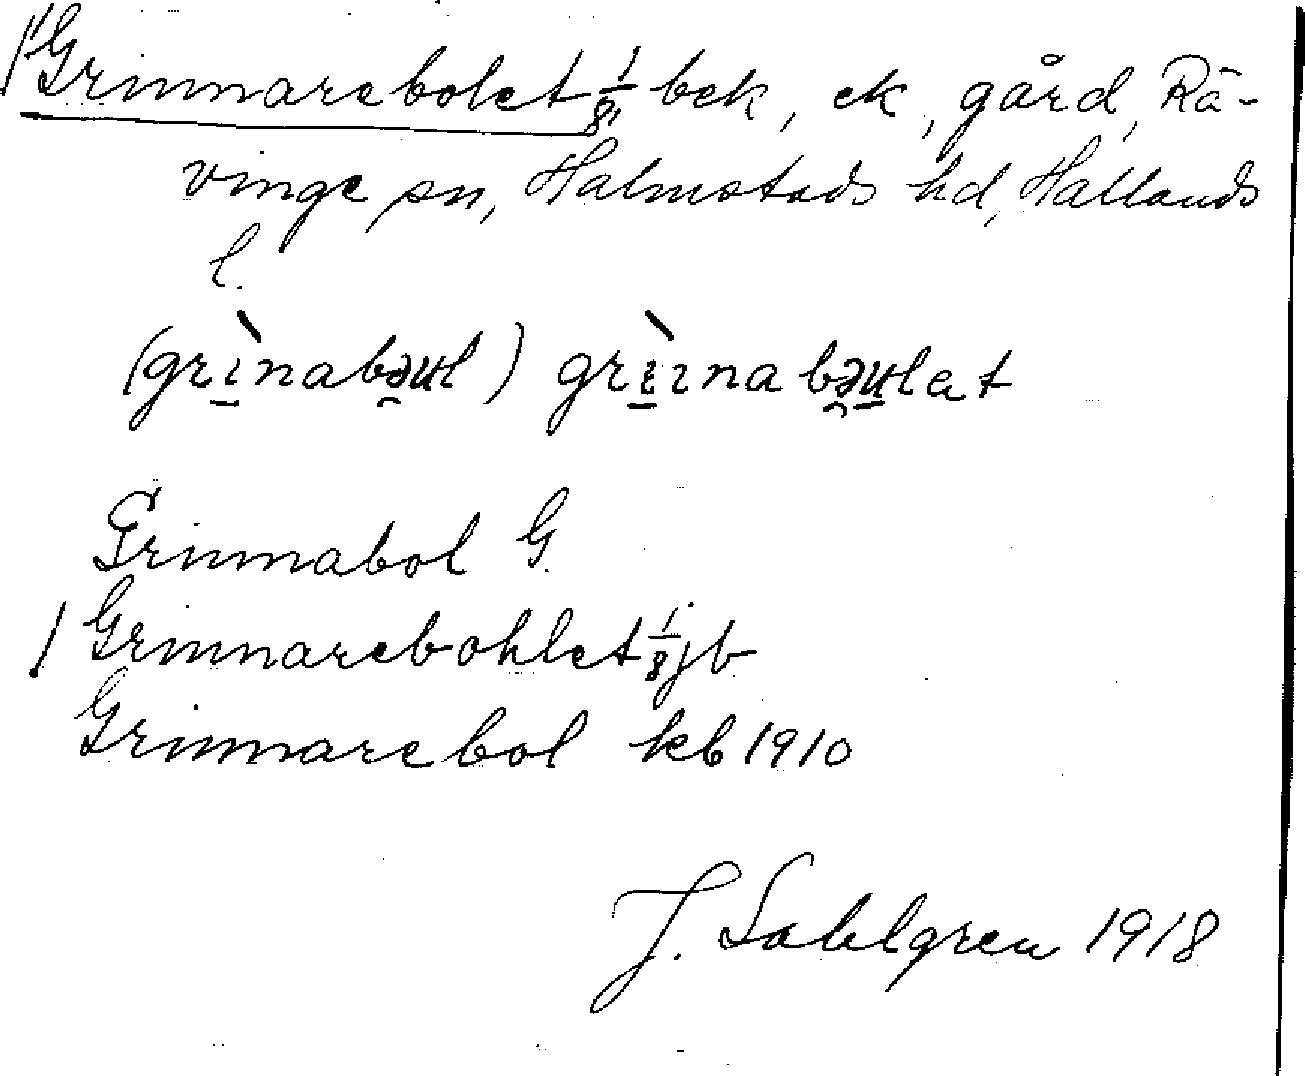 Grinnarebolet 1/8 bek, ek, gård, Rä-
vinge sn, Halmstads hd, Hallands
l.
(grìnabəul) grìɪnabəulat
Grinnabol G.
Grinnarebohlet 1/8 jb
Grinnarebol kb 1910
J. Sahlgren 1918